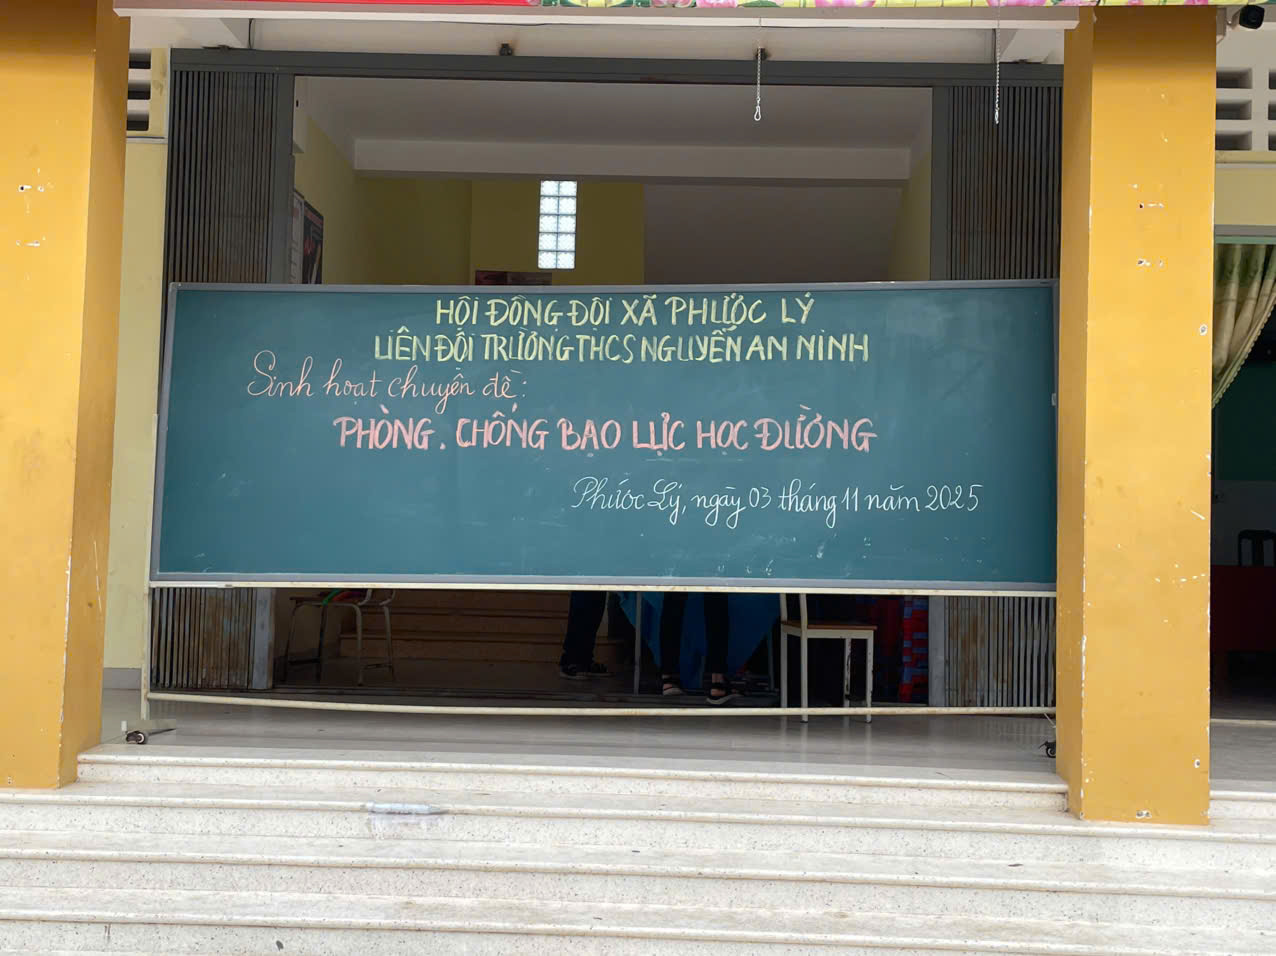 HỘI ĐỒNG ĐỘI XÃ PHƯỚC LÝ
LIÊN ĐỘI TRƯỜNG THCS NGUYỄN AN NINH
Sinh hoạt chuyên đề:
PHÒNG, CHỐNG BẠO LỰC HỌC ĐƯỜNG
Phước Lý, ngày 03 tháng 11 năm 2025